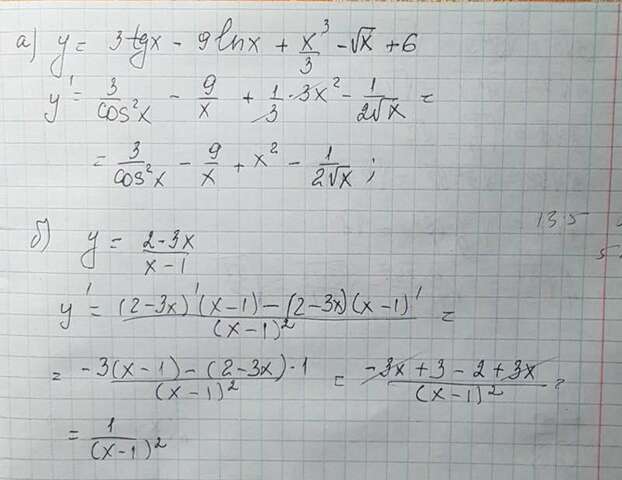 а) y = 3tgx - 9lnx + x³/3 - √x + 6
y' = 3/cos²x - 9/x + 1/3 · 3x² - 1/2√x =
= 3/cos²x - 9/x + x² - 1/2√x ;
13.5
б) y = 2-3x/x-1
y' = (2-3x)'(x-1) - (2-3x)(x-1)'/(x-1)² =
= -3(x-1) - (2-3x)·1/(x-1)² = -3x+3-2+3x/(x-1)² =
= 1/(x-1)²